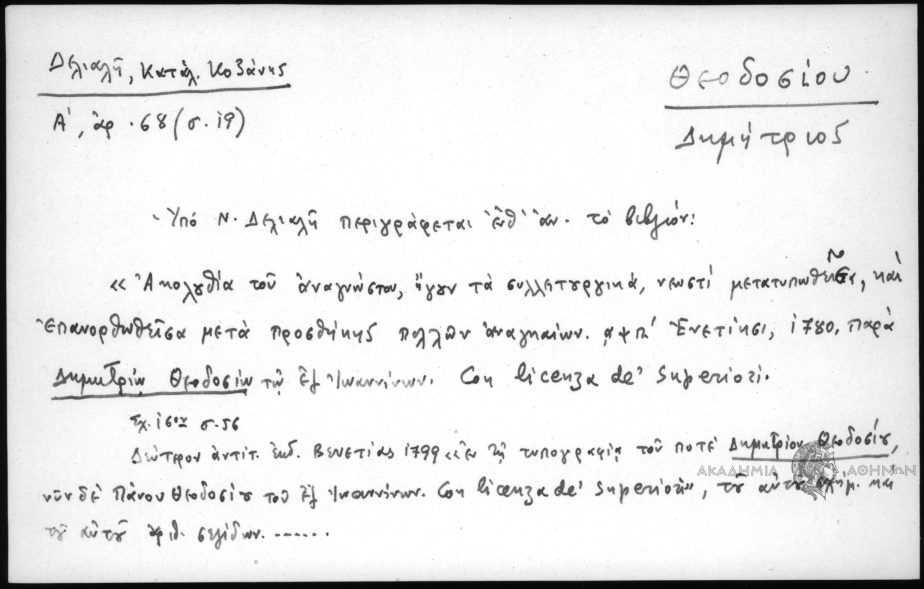 Δελιαλῆ, Κατάλ. Κοζάνης
Α', ἀρ. 68 (σ. 19)
Θεοδοσίου
Δημήτριος
Ὑπό Ν. Δελιαλῆ περιγράφεται ἐνθ' ἀν. τὸ βιβλίον:
«Ἀκολυθία τοῦ ἀναγνώστου, ἤγουν τὰ συλλετυργικά, νεωστί μετατυπωθεῖσα, καὶ
Ἐπανορθωθεῖσα μετὰ προσθήκης πολλῶν ἀναγκαίων. ͵αψπ' Ἐνετίησι, 1780, παρὰ
Δημητρίῳ Θεοδοσίῳ τῷ ἐξ Ἰωαννίνων. Con licenza de' Superiori.
Σχ. σ. 56
Δεύτερον ἀντίτ. ἐκδ. Βενετίας 1799 «ἐν τῇ τυπογραφίᾳ τοῦ ποτὲ Δημητρίου Θεοδοσίυ,
νῦν δὲ Πάνου Θεοδοσίυ τοῦ ἐξ Ἰωαννίνων. Con licenza de' Superiori», τοῦ αὐτοῦ σχήμ. καὶ
τοῦ αὐτοῦ ἀριθ. σελίδων. ......
ΑΚΑΔΗΜΙΑ ΑΘΗΝΩΝ